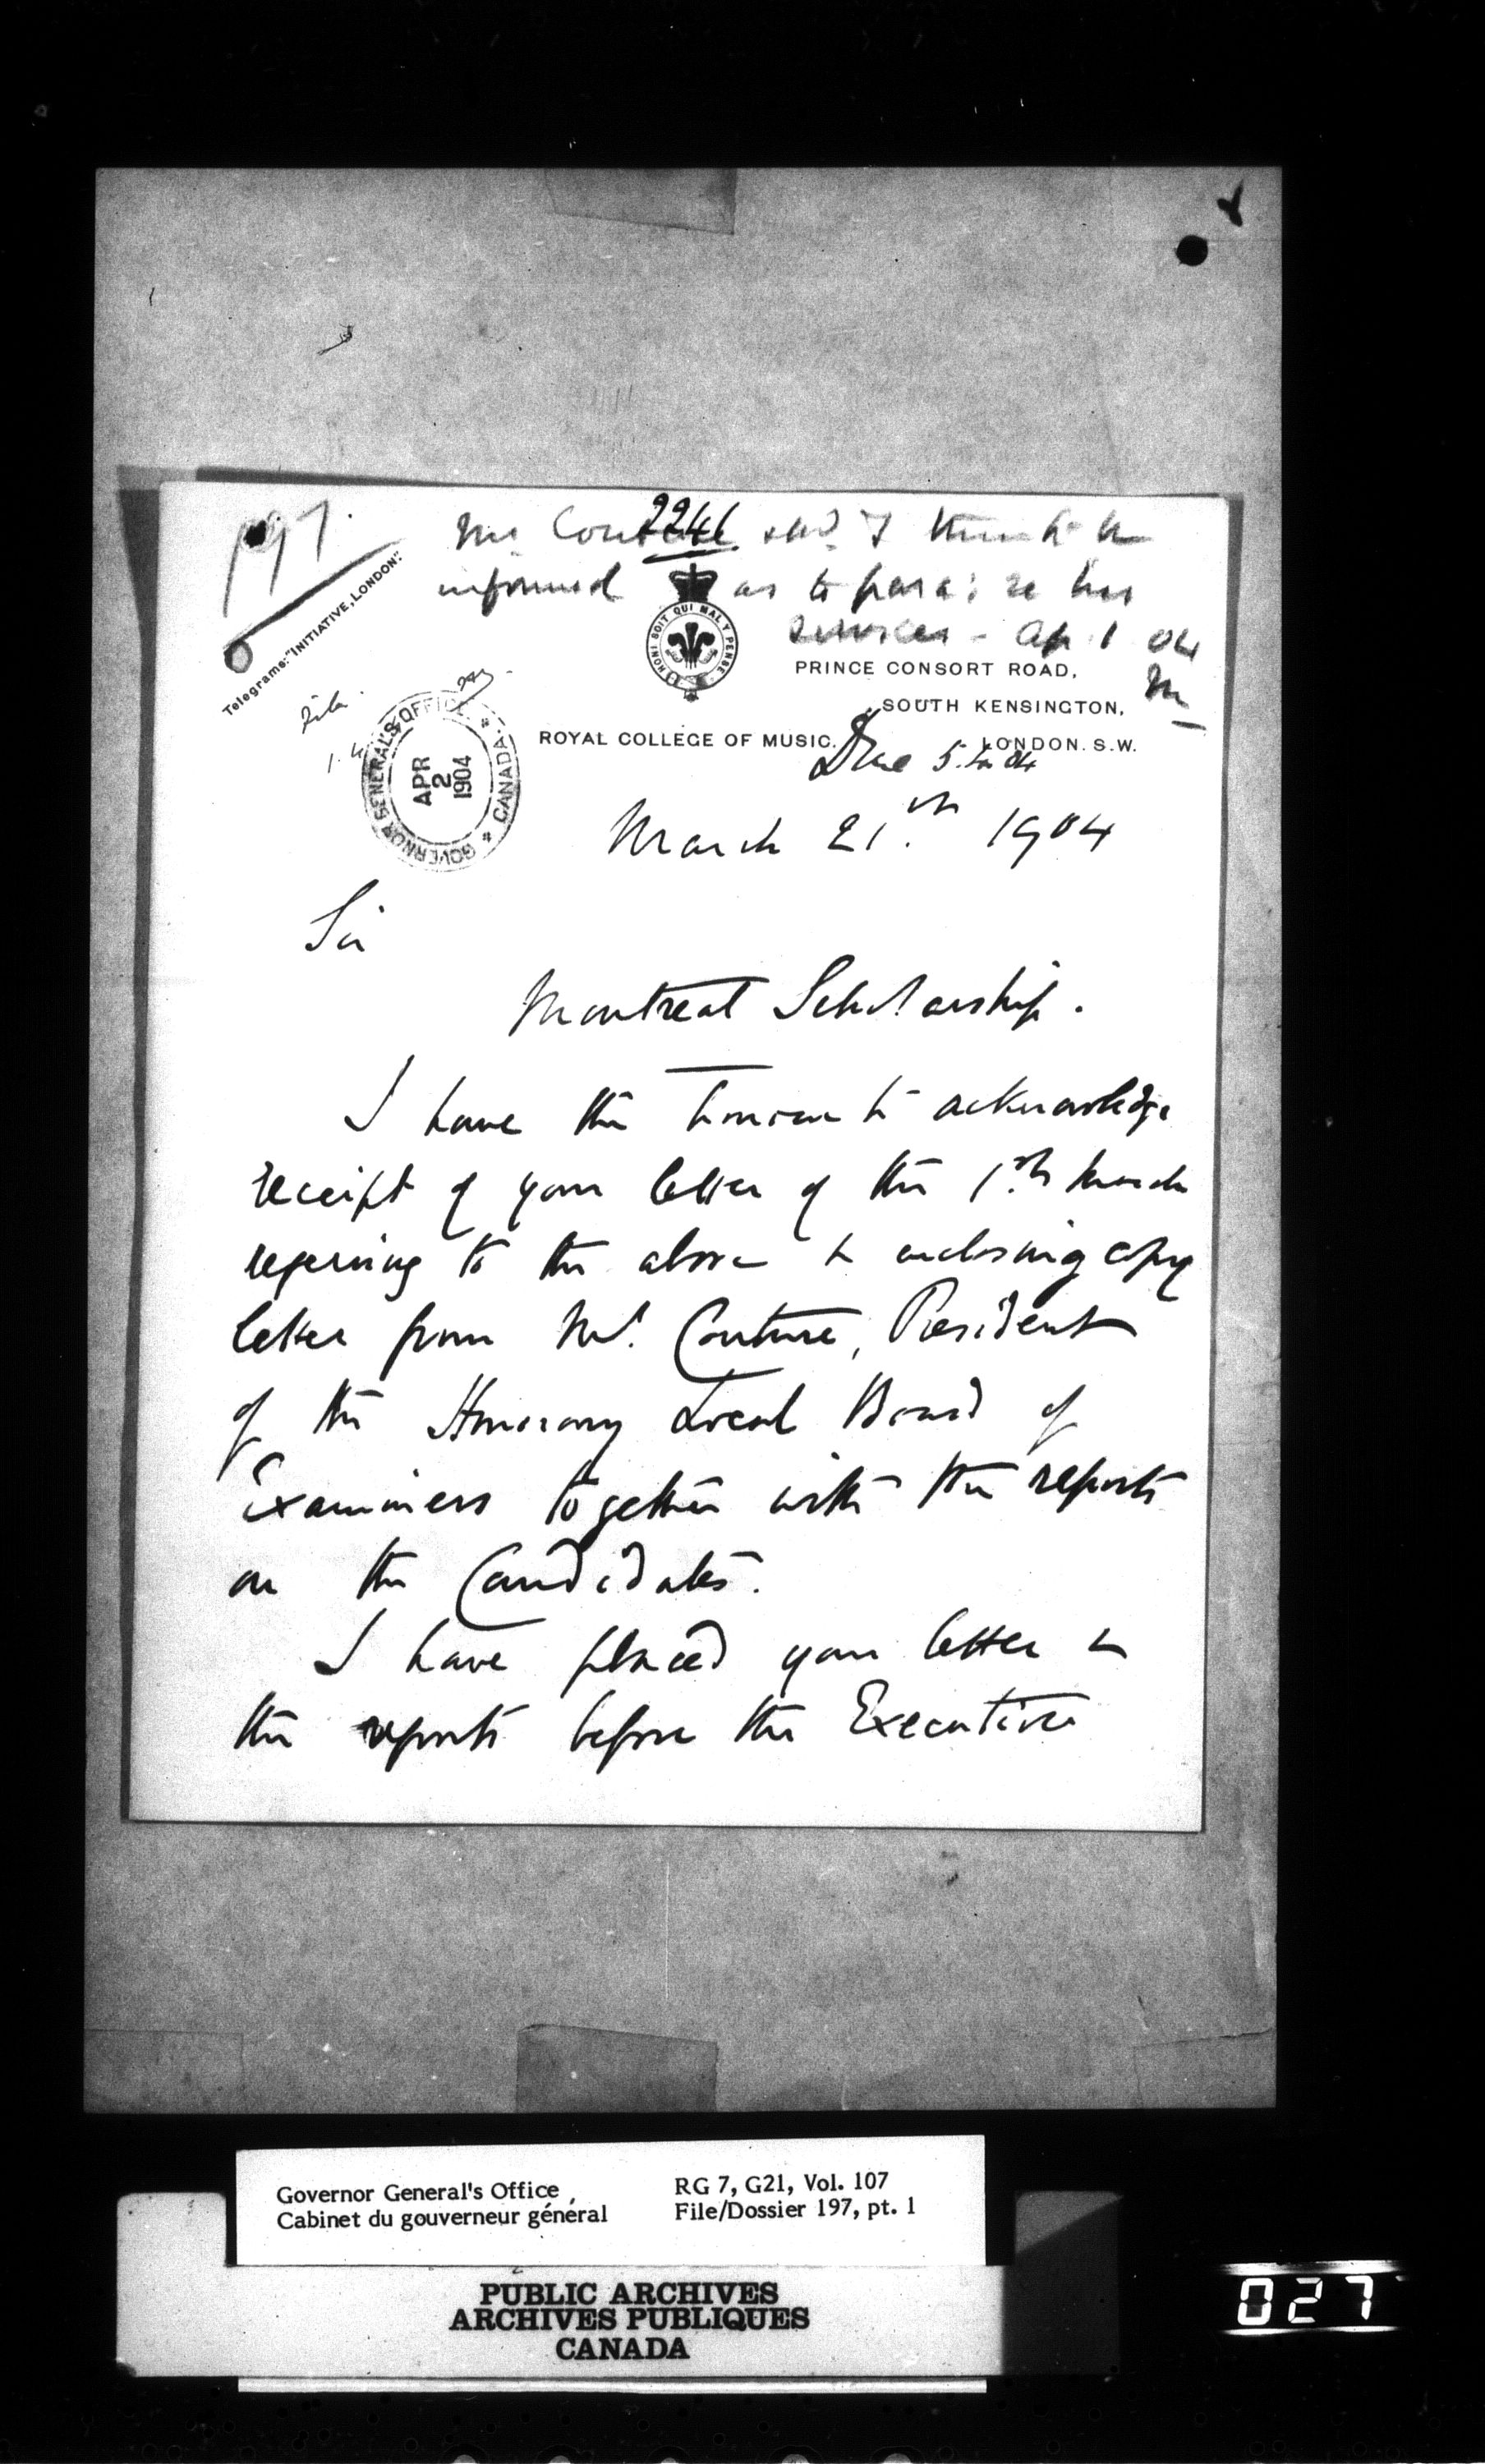 197.
2246
Mr. Couture shd. I think be
informed as to para: re his
services - Ap. 1 04
Telegrams: "INITIATIVE, LONDON."
HONI SOIT QUI MAL Y PENSE
PRINCE CONSORT ROAD,
SOUTH KENSINGTON,
ROYAL COLLEGE OF MUSIC. LONDON. S.W.
GOVERNOR GENERAL'S OFFICE * CANADA *
APR
2
1904
5.4.04
March 21st. 1904
Sir
Montreal Scholarship.
I have the honour to acknowledge
receipt of your letter of the 1st March
referring to the above & enclosing copy
letter from Mr. Couture, President
of the Honorary Local Board of
Examiners together with the reports
on the Candidates.
I have placed your letter &
the reports before the Executive
Governor General's Office
Cabinet du gouverneur général
RG 7, G21, Vol. 107
File/Dossier 197, pt. 1
PUBLIC ARCHIVES
ARCHIVES PUBLIQUES
CANADA
027